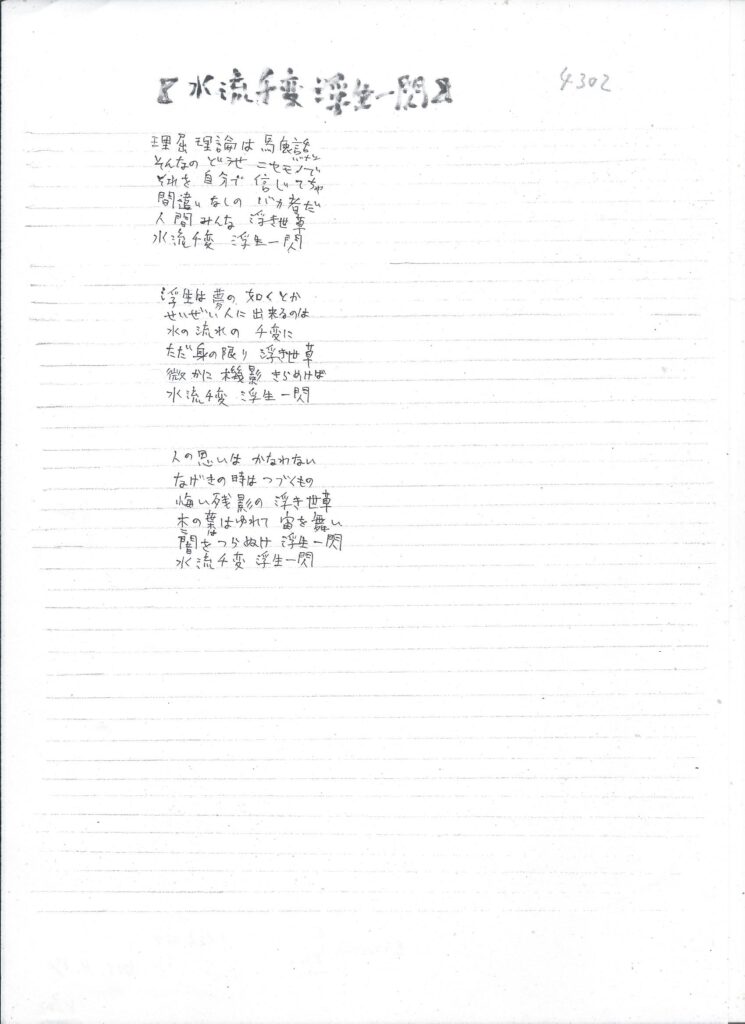 水流千変 浮生一閃
4302
理屈理論は 馬鹿話
そんなの どうせ ニセモノで
それを 自分で 信じてちゃ
間違いなしの バカ者だ
人間みんな 浮き世草
水流千変 浮生一閃
浮生は夢の 如くとか
せいぜい人に出来るのは
水の流れの 千変に
ただ身の限り 浮き世草
微かに 機影 きらめけば
水流千変 浮生一閃
人の思いは かなわない
なげきの時は つづくもの
悔い残影の 浮き世草
木の葉はゆれて 宙を舞い
闇をつらぬけ 浮生一閃
水流千変 浮生一閃